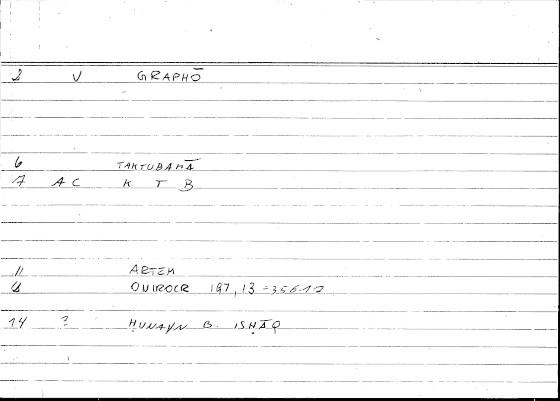 2 V GRAPHŌ
6 TAKTUBAHĀ
7 AC K T B
11 ARTEM
ONIROCR 197, 13 = 356.12
14 ? ḤUNAYN B. ISḤĀQ